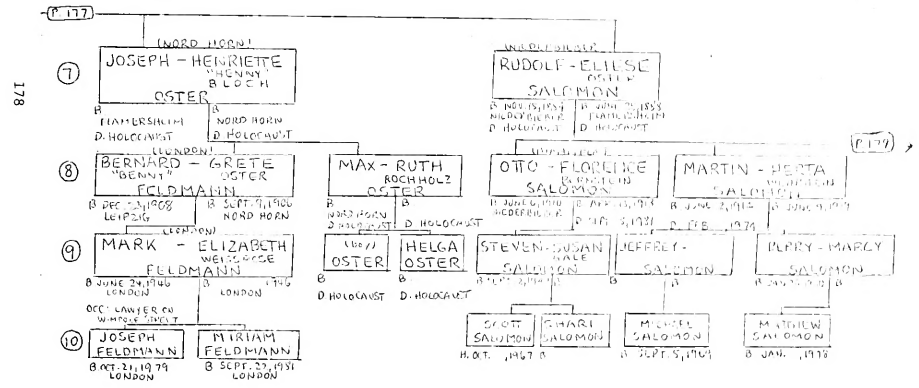 P. 177
178
(NORD HORN)
7
JOSEPH - HENRIETTE
"HENNY"
BLOCH
OSTER
B
B
FLAMERSHEIM
NORD HORN
D. HOLOCAUST
D. HOLOCAUST
RUDOLF - ELIESE
OSTER
SALOMON
B NOV. 15, 1884
NIEDERBIEBER
D HOLOCAUST
D HOLOCAUST
P. 179
(LONDON)
8
BERNARD - GRETE
"BENNY" OSTER
FELDMANN
B DEC. 1908
LEIPZIG
B SEPT. 9, 1906
NORD HORN
MAX - RUTH
ROCHHOLZ
OSTER
B
B
NORD HORN
D HOLOCAUST
D HOLOCAUST
OTTO - FLORENCE
SALOMON
B JUNE 6, 1910
NIEDERBIEBER
MARTIN - HERTA
SALOMON
(LONDON)
9
MARK - ELIZABETH
FELDMANN
B JUNE 24, 1946
LONDON
B 1946
LONDON
OCC: LAWYER ON
WIMPOLE STREET
OSTER
B
D. HOLOCAUST
HELGA
OSTER
B
D. HOLOCAUST
STEVEN - SUSAN
GALE
SALOMON
JEFFREY -
SALOMON
PERRY - MARCY
SALOMON
10
JOSEPH
FELDMANN
B. OCT. 21, 1979
LONDON
MIRIAM
FELDMANN
B SEPT. 27, 1981
LONDON
SCOTT
SALOMON
OCT. , 1967
SHARI
SALOMON
B
MICHAEL
SALOMON
B SEPT. 5, 1969
MATTHEW
SALOMON
B JAN. , 1978